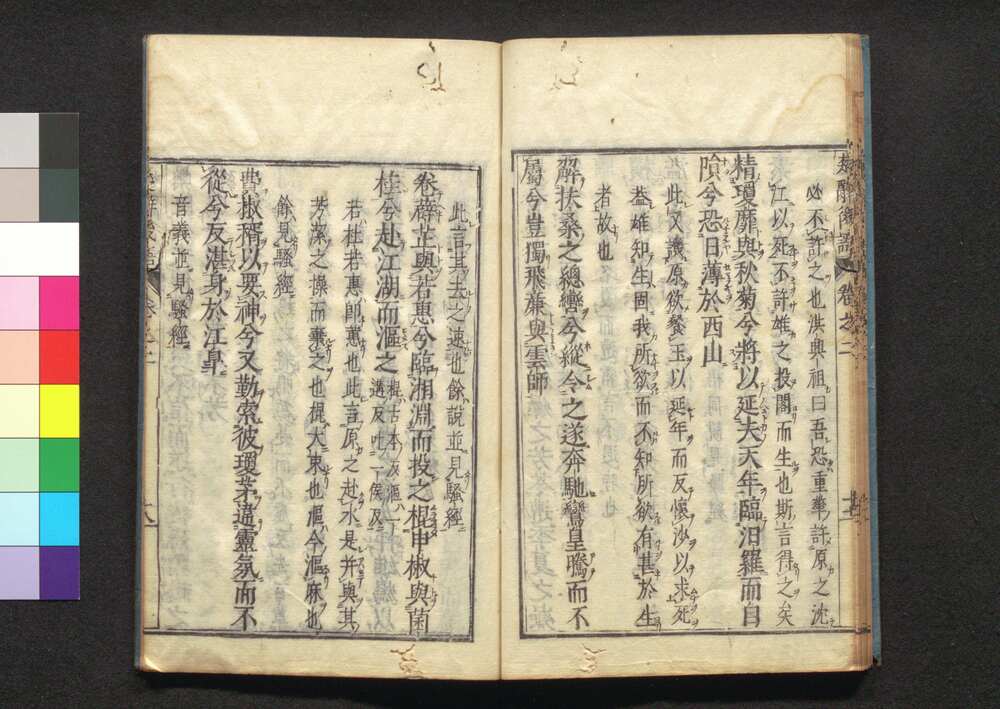 必不許之也洪興祖曰吾恐重華許原之沈
江以死不許雄之投閣而生也斯言得之矣
精瓊靡與秋菊兮將以延夫天年臨汨羅而自
隕兮恐日薄於西山
此又譏原欲餐玉以延年而反懷沙以求死
蓋雄知生固我所欲而不知所欲有甚於生
者故也
解扶桑之總轡兮縱令之遂奔馳鸞皇騰而不
屬兮豈獨飛廉與雲師
此言其去之速也餘說並見騷經
卷薜芷與若惠兮臨湘淵而投之棍申椒與菌
桂兮赴江湖而漚之棍古本反漚一
遘反吐一侯反
若杜若惠卽蕙也此言原之赴水是并與其
芳潔之操而棄之也棍大束也漚今漚麻也
餘見騷經
費椒稰以要神兮又勤索彼瓊茅違靈氛而不
從兮反湛身於江臯
音義並見騷經